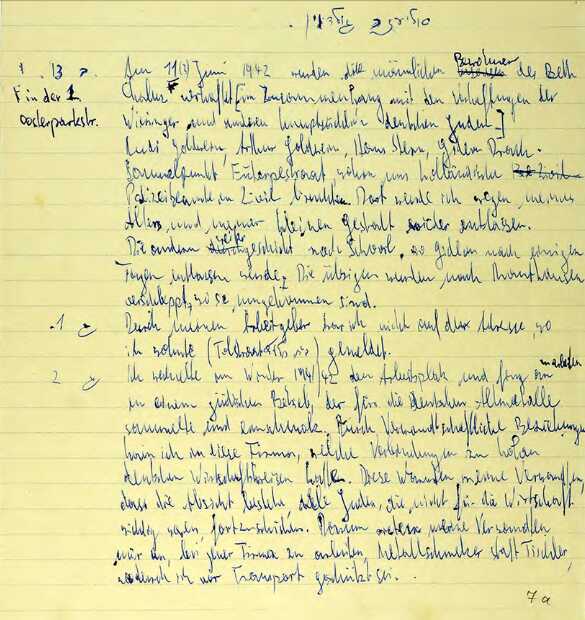 1. 13 ב Am 11(?) Juni 1942 wurden die männlichen Bewohner des Beth
* in der 1. Chaluz * verhaftet [im Zusammenhang mit den Verhaftungen der
oosterparkstr. Wieringer und anderen hauptsächlich deutschen Juden-]
Rudi Goldstein, Arthur Goldstein, Hans Stern,
Sammelpunkt Euterpestraat, wohin uns holländische
Polizeibeamte in Zivil brachten. Dort wurde ich wegen meines
Alters und meiner kleinen Gestalt wieder entlassen.
Die anderen weiter geschickt nach Schoorl, wo nach einigen
Tagen entlassen wurde. Die übrigen wurden nach Mauthausen
verschleppt, wo sie umgekommen sind.
.1 Durch meinen Arbeitgeber war ich nicht auf der Adresse, wo
ich wohnte gemeldet.
2 Ich wechselte im Winter 1941/42 den Arbeitsplatz und fing an zu arbeiten
in einem jüdischen Betrieb, der für die Deutschen Altmetalle
sammelte und einschmolz. Durch Verwandtschaftliche Beziehungen
kam ich in diese Firma, welche Verbindungen zu hohen
deutschen Wirtschaftskreisen hatte. Diese meine Verwandten,
dass die Absicht bestehe, alle Juden, die nicht für die Wirtschaft
wichtig waren, fortzuschicken. Darum rieten meine Verwandten
mir an, bei jener Firma zu arbeiten, Metallschmelzer statt Tischler,
wodurch ich vor Transport geschützt sei.
7a